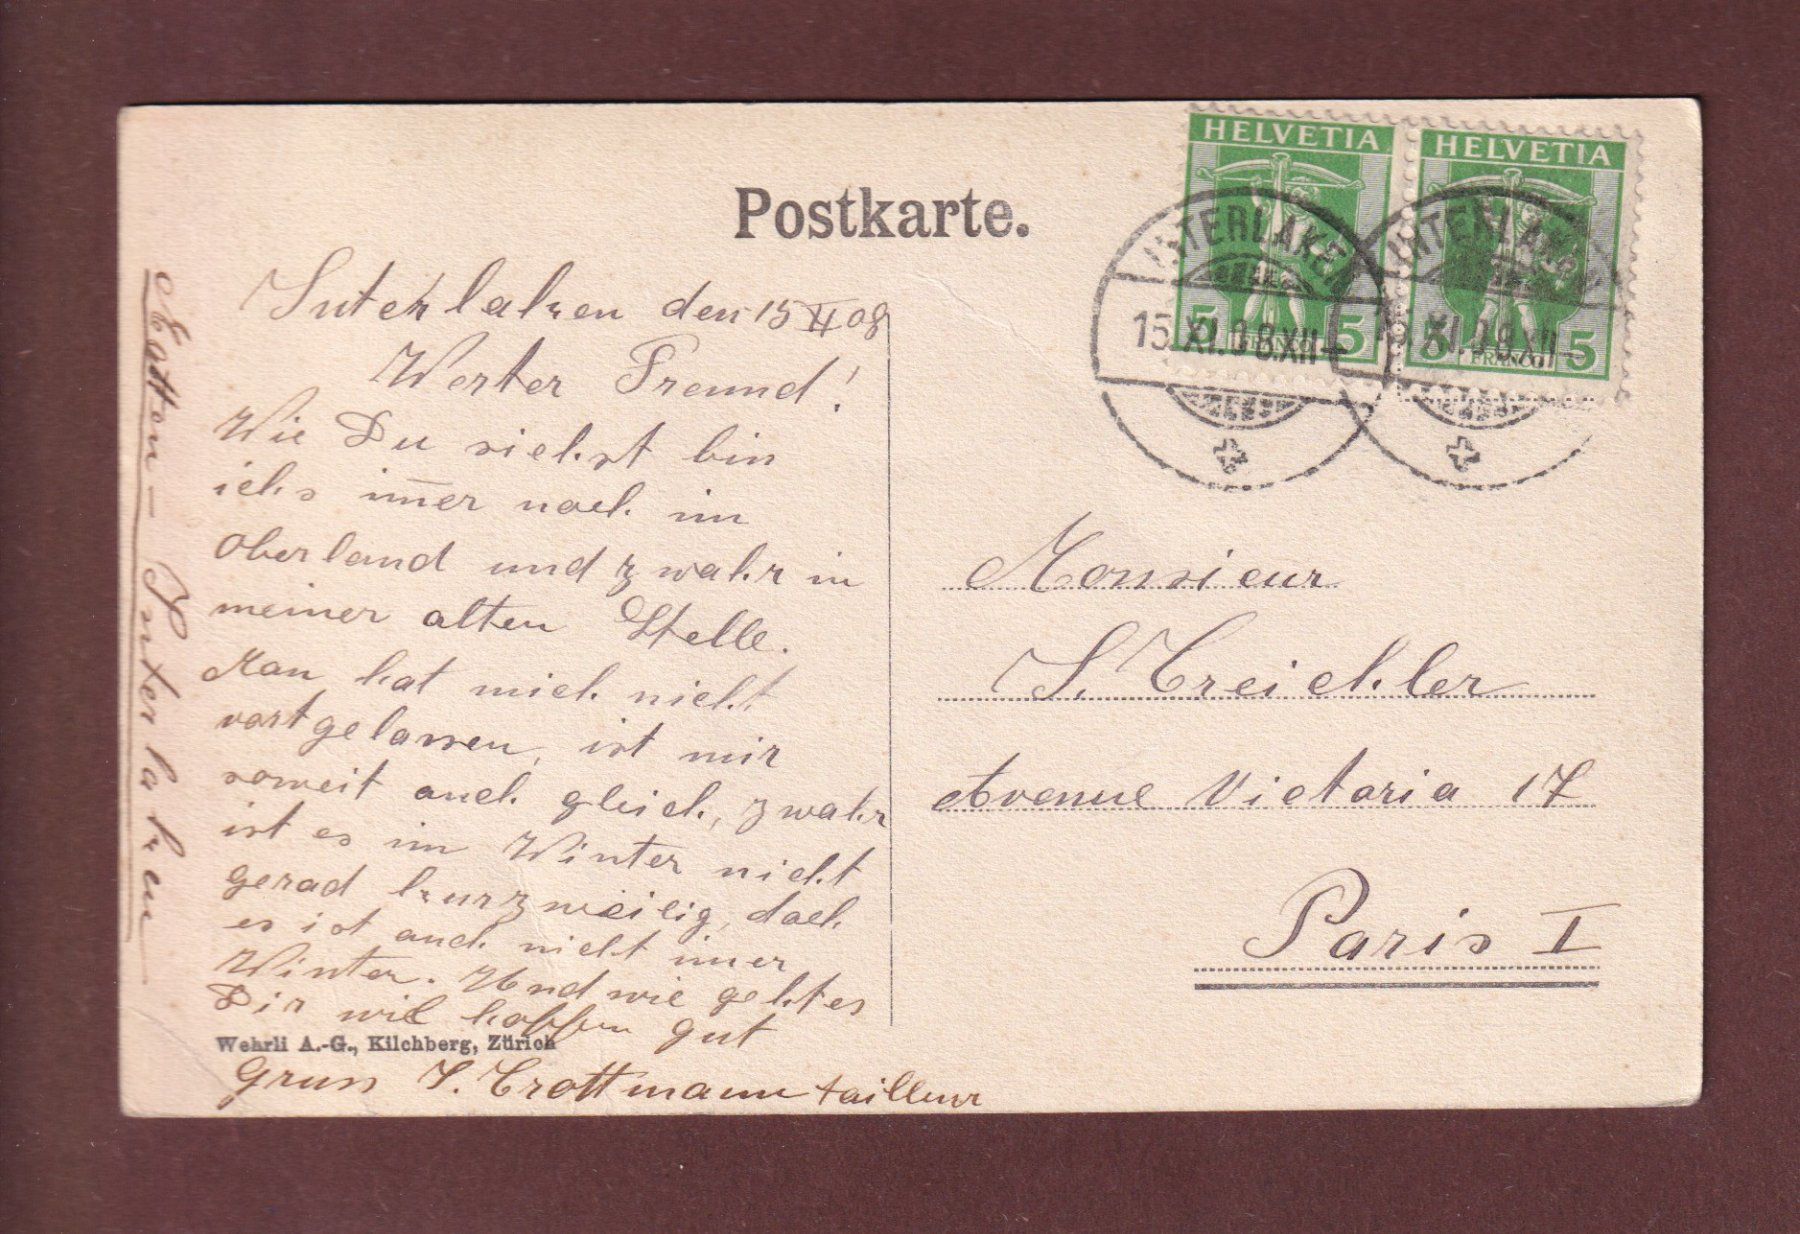 Postkarte.
HELVETIA
HELVETIA
5 FRANCO 5
5 FRANCO 5
INTERLAKEN
15.XI.08.XII
INTERLAKEN
15.XI.08.XII
Interlaken den 15 XI 08
Werter Freund!
Wie Du siehst bin
ichs im̅er noch im
Oberland und zwahr in
meiner alten Stelle.
Man hat mich nicht
vortgelassen, ist mir
soweit auch gleich, zwahr
ist es im Winter nicht
gerad kurzweilig, doch
es ist auch nicht im̅er
Winter. Und wie geht es
Dir wil hoffen gut
Wehrli A.-G., Kilchberg, Zürich
Gruss J. Trottmann tailleur
Matten – Interlaken
Monsieur
J. Treichler
Avenue Victoria 17
Paris I